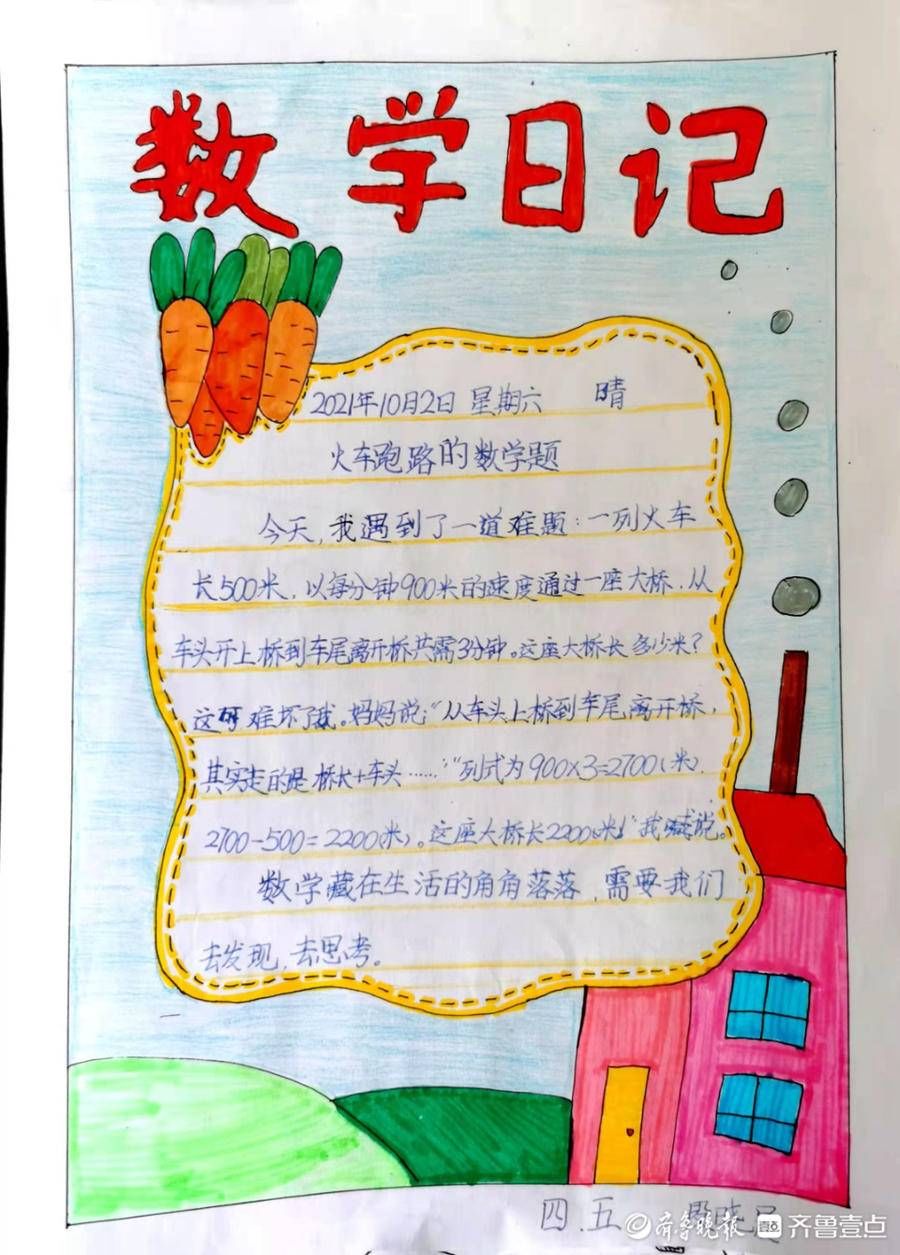 数学日记
2021年10月2日 星期六 晴
火车跑路的数学题
今天,我遇到了一道难题:一列火车
长500米,以每分钟900米的速度通过一座大桥,从
车头开上桥到车尾离开桥共需3分钟。这座大桥长多少米?
这可难坏了我。妈妈说:“从车头上桥到车尾离开桥,
其实走的是桥长+车头……”“列式为900×3=2700(米),
2700-500=2200(米)。这座大桥长2200(米)!”我喊说。
数学藏在生活的角角落落,需要我们
去发现,去思考。
四.五
齐鲁晚报 齐鲁壹点